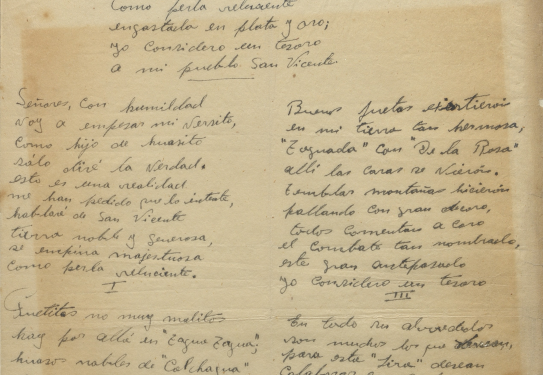 Como perla reluciente
engastada en plata y oro;
yo considero un tesoro
a mi pueblo San Vicente.
Señores, con humildad
voy a empesar mi versito,
como hijo de huasito
sólo diré la verdad.
esto es una realidad
me han pedido que lo intente,
hablaré de San Vicente
tierra noble y generosa,
se empina majestuosa
como perla reluciente.
I
no muy malitos
hay por allá en "Tagua Tagua";
huasos nobles de "Colchagua"
Buenos puetas existieron
en mi tierra tan hermosa,
"Taguada" con "De la Rosa"
allí las caras se vieron.
Temblar montañas hicieron
pallando con gran decoro,
todos comentan a coro
el combate tan nombrado,
este gran antepasado
yo considero un tesoro
III
En todo su alrededor
son muchos los que
para esta "Lira"